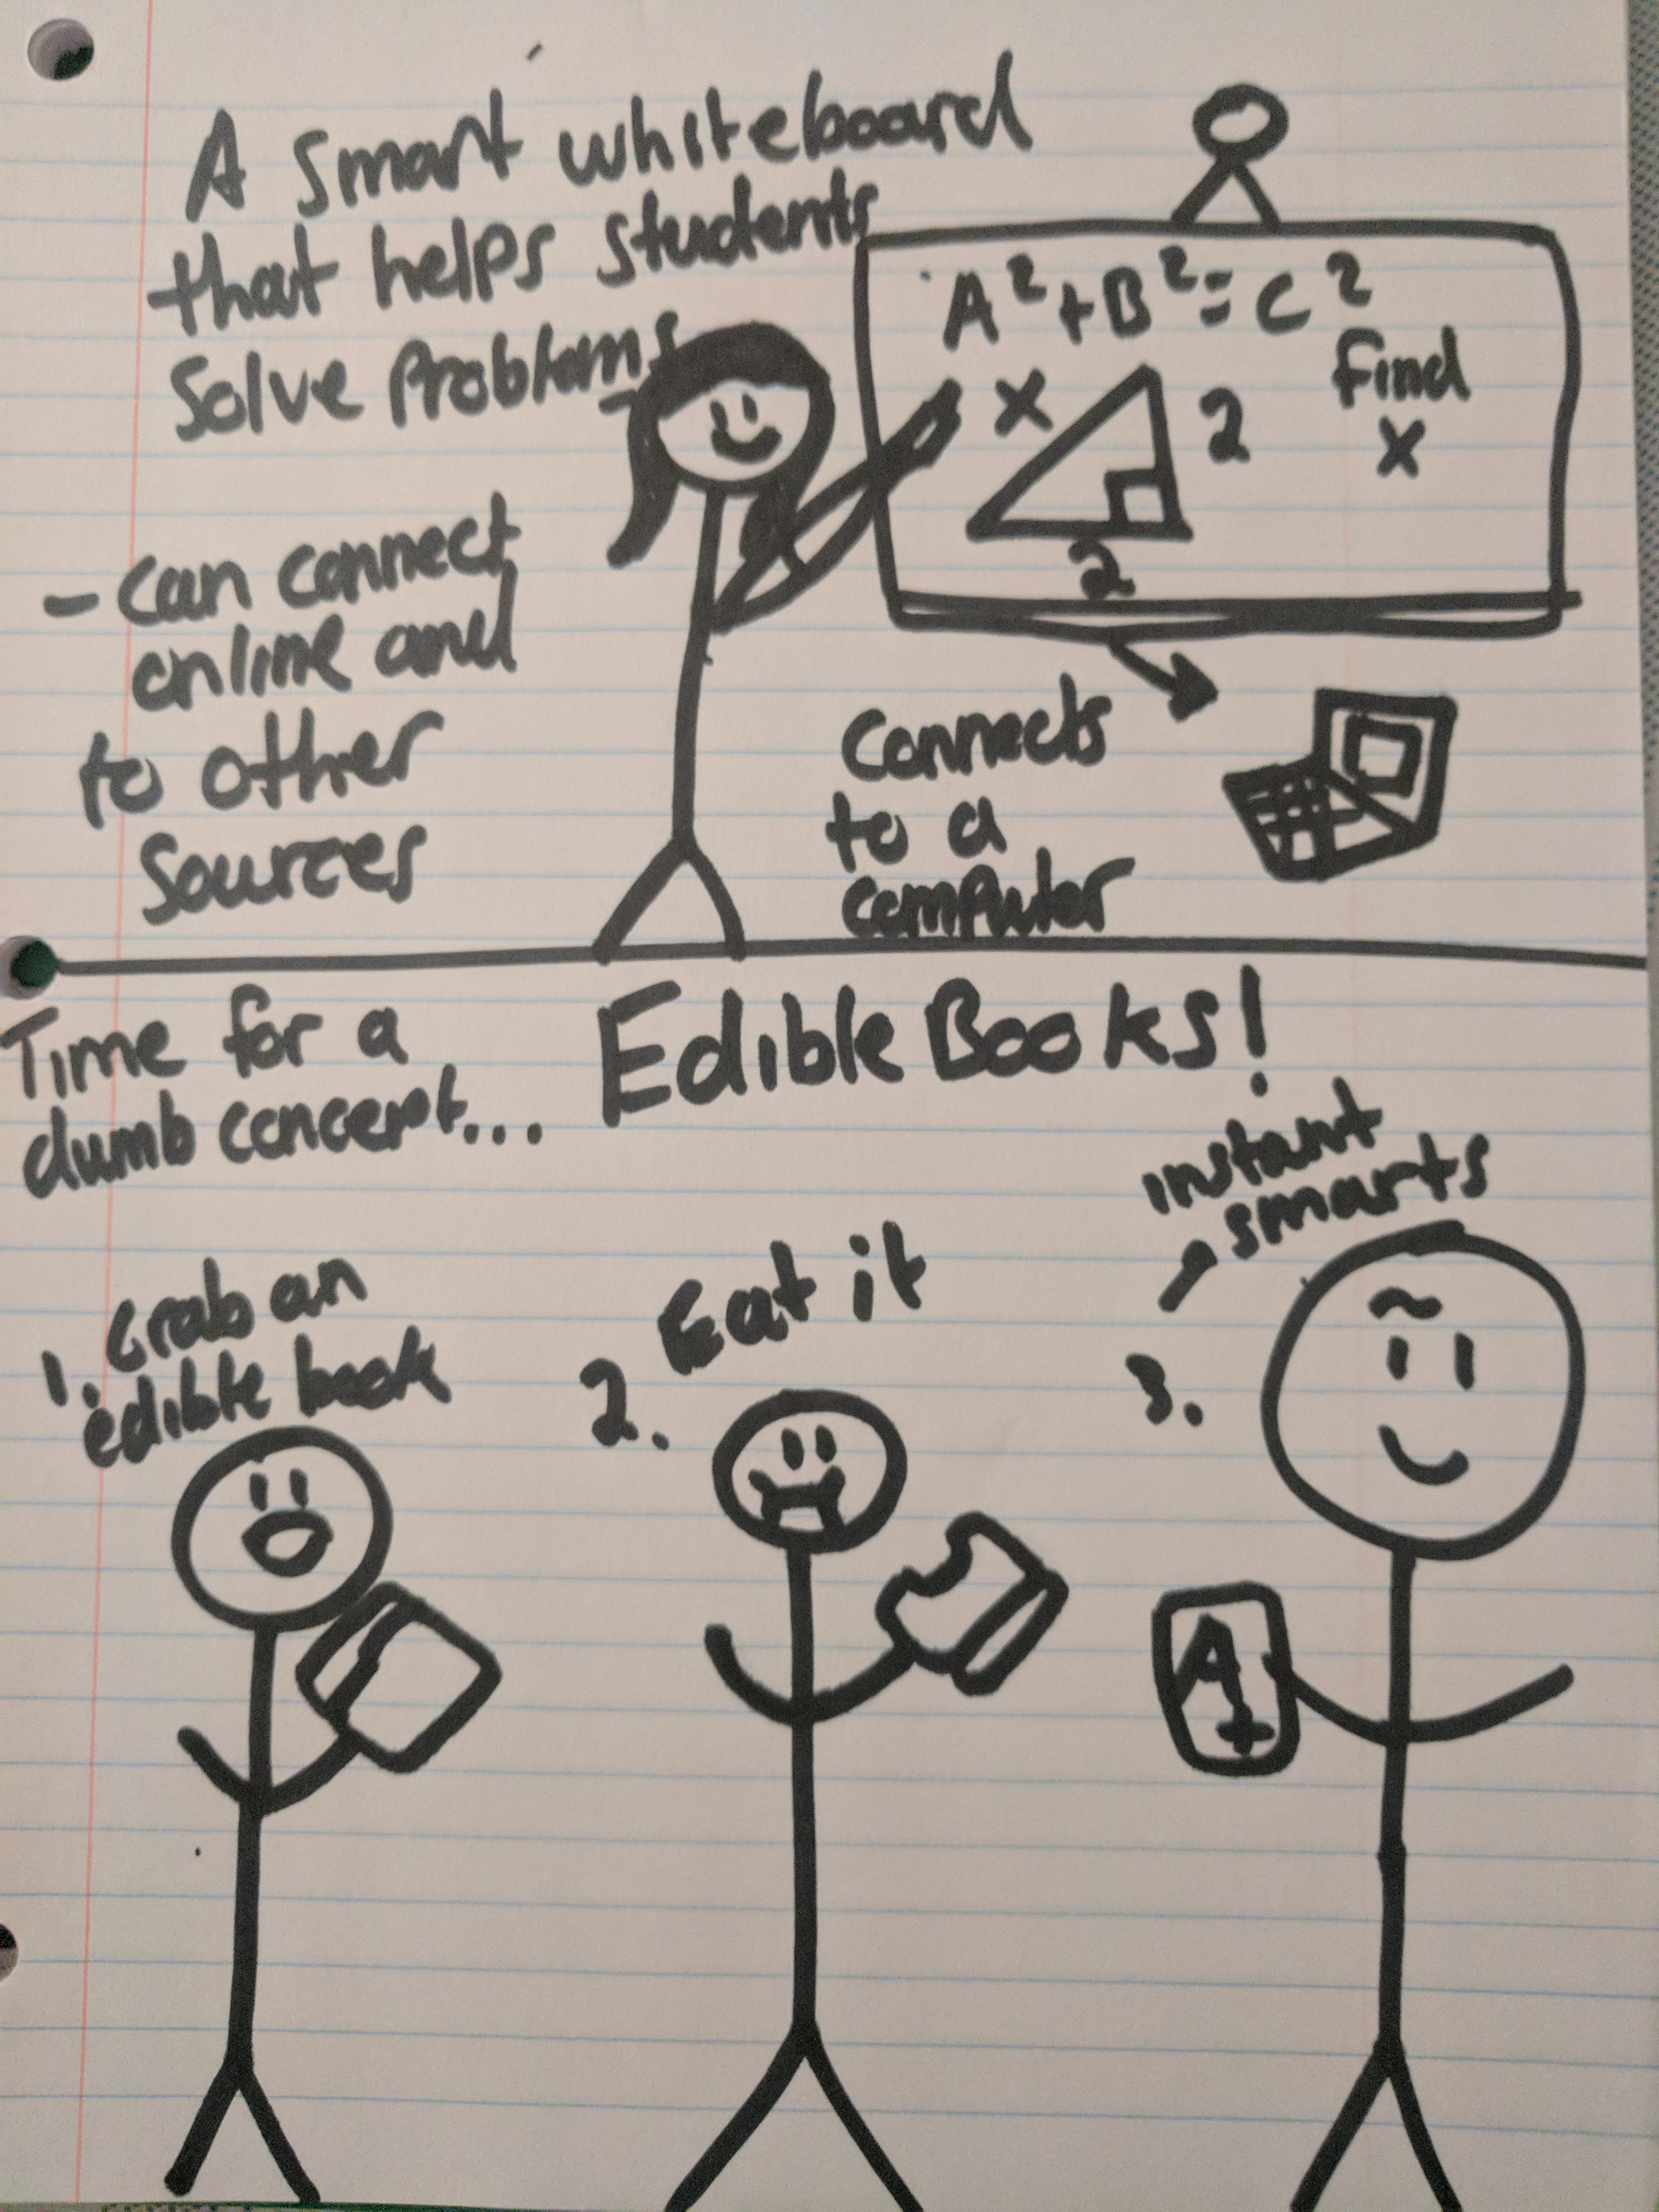 A smart whiteboard
that helps students
solve problems
A²+B²=C²
Find
x
x
2
2
- can connect
online and
to other
sources
Connects
to a
computer
Time for a
dumb concept...
Edible Books!
1. Grab an
edible book
2. Eat it
3.
instant
smarts
A+